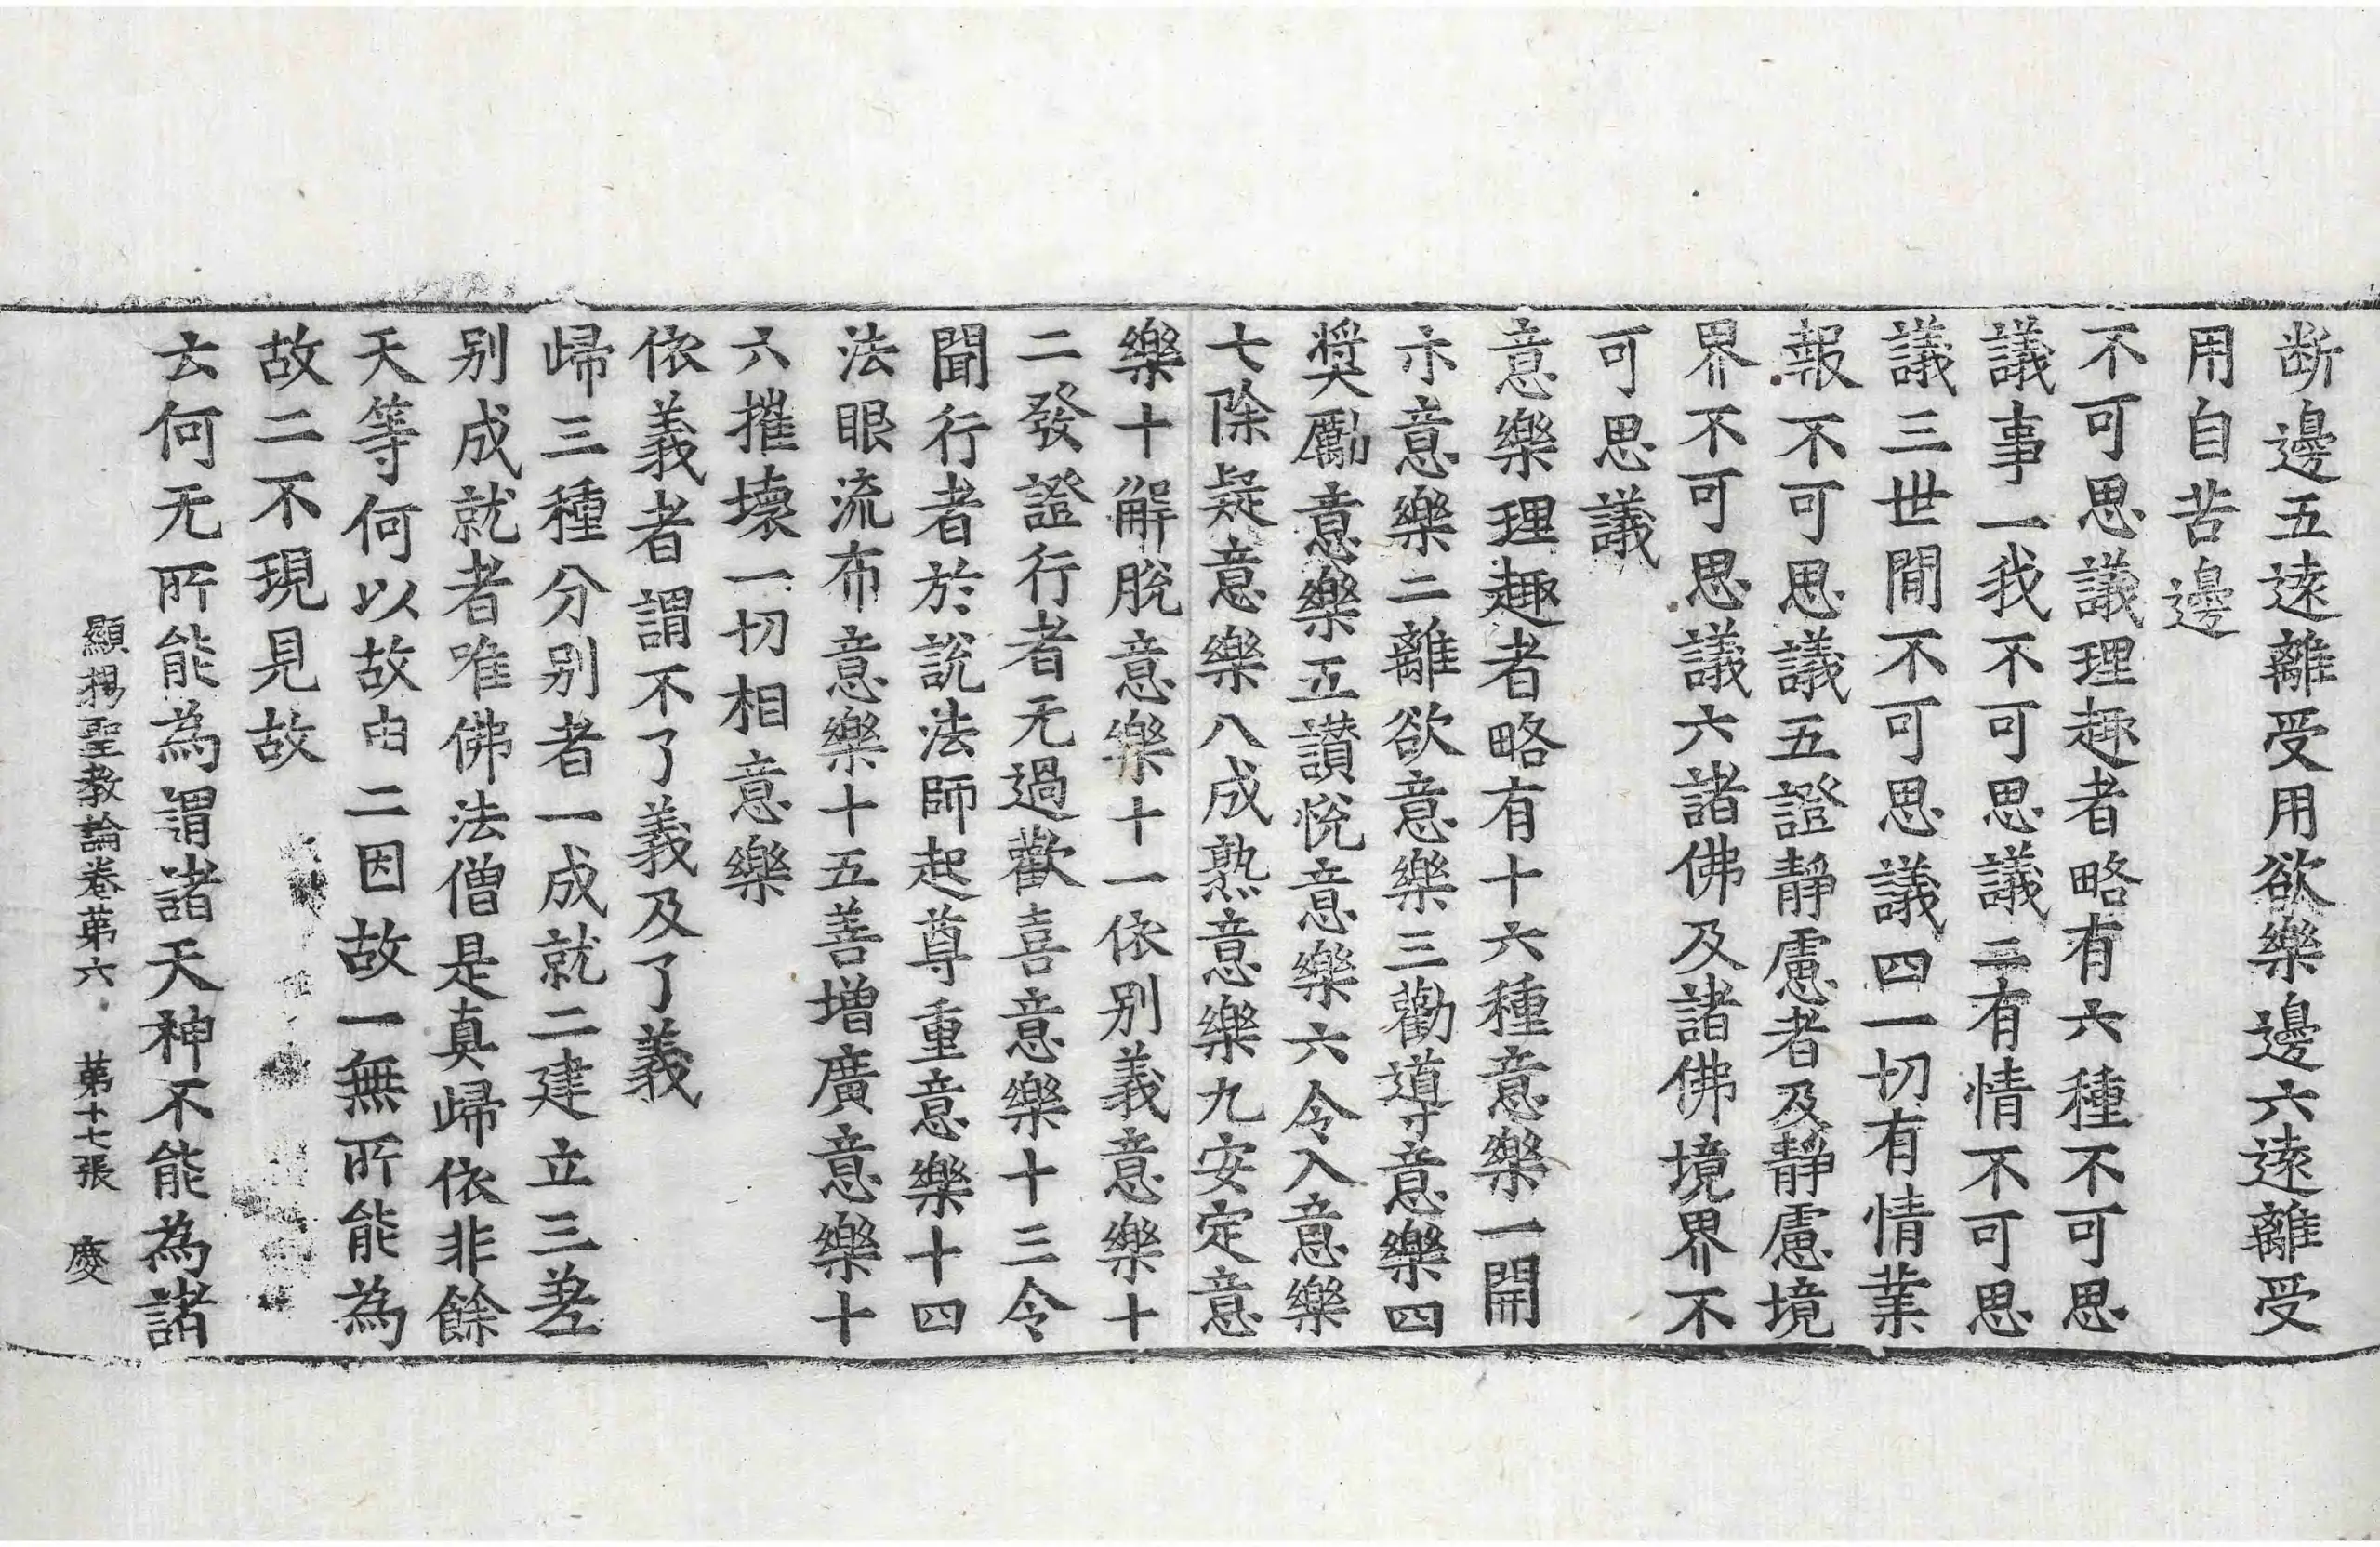 断邊五遠離受用欲樂邊六遠離受
用自苦邊
不可思議理趣者略有六種不可思
議事一我不可思議二有情不可思
議三世間不可思議四一切有情業
報不可思議五證靜慮者及靜慮境
界不可思議六諸佛及諸佛境界不
可思議
意樂理趣者略有十六種意樂一開
示意樂二離欲意樂三勸導意樂四
奬勵意樂五讚悅意樂六令入意樂
七除疑意樂八成熟意樂九安定意
樂十解脫意樂十一依别義意樂十
二發證行者无過歡喜意樂十三令
聞行者於說法師起尊重意樂十四
法眼流布意樂十五善增廣意樂十
六摧壞一切相意樂
依義者謂不了義及了義
歸三種分别者一成就二建立三差
别成就者唯佛法僧是真歸依非餘
天等何以故由二因故一無所能為
故二不現見故
云何无所能為謂諸天神不能為諸
顯揚聖教論卷第六 第十七張 慶